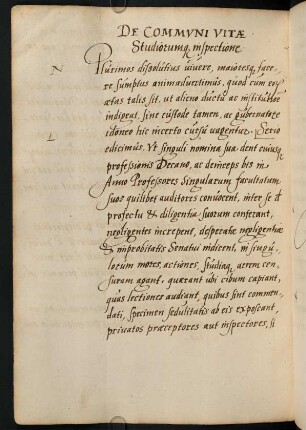 DE COMMVNI VITÆ
Studiorumq; inspectione.
N
Plurimos dissolutius viuere, maioresq; face-
re sumptus animaduertimus, quod cum eorum
ætas talis sit, ut alieno ductu ac institutore
indigeat, sine custode tamen, ac gubernatore
idoneo hic incerto cursu uagentur. Serio
L
edicimus. Vt singuli nomina sua dent cuiusq;
professionis Decano, ac deinceps bis in
Anno Professores singularum facultatum
suos quilibet auditores conuocent, inter se de
profectu & diligentia suorum conferant,
negligentes increpent, desperatæ negligentiæ
& improbitatis Senatui indicent, in singu-
lorum mores, actiones, studiaq; acrem cen-
suram agant, quærant ubi cibum capiant,
quas lectiones audiant, quibus sint commen-
dati, specimen sedulitatis ab eis exposcant,
priuatos præceptores aut inspectores, si